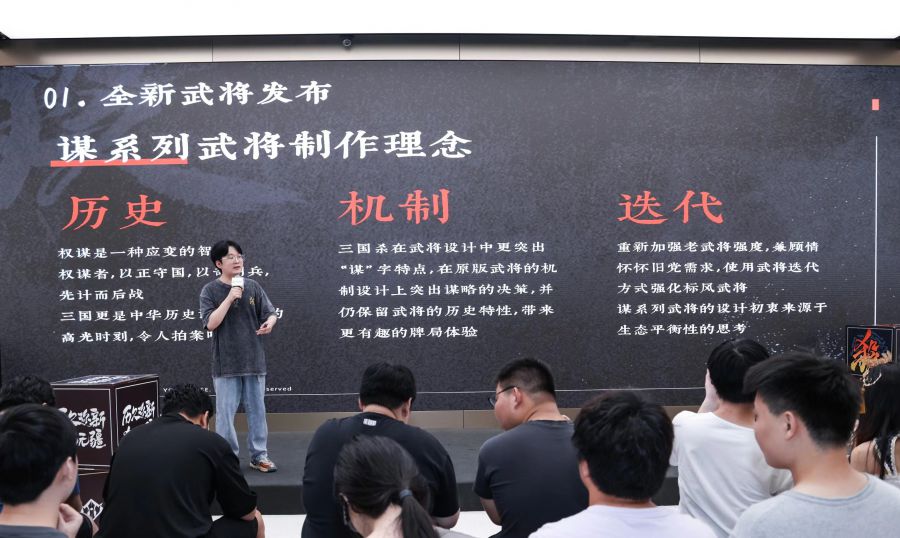 01. 全新武将发布
谋系列武将制作理念
历史
权谋是一种应变的智
权谋者，以正守国，以
兵，
先计而后战
三国更是中华历史
的
高光时刻，令人拍案
机制
三国杀在武将设计中更突出
“谋”字特点，在原版武将的机
制设计上突出谋略的决策，并
仍保留武将的历史特性，带来
更有趣的牌局体验
迭代
重新加强老武将强度，兼顾情
怀怀旧党需求，使用武将迭代
方式强化标风武将
谋系列武将的设计初衷来源于
生态平衡性的思考
served
杀